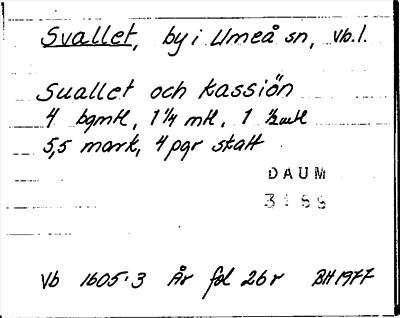 Svallet, by i Umeå sn, Vb.l.
Suallet och Kassiön
4 bgmtl, 1 1/4 mtl, 1 1/2 mtl
5,5 mark, 4 pgr skatt
DAUM
3188
Vb 1605:3 År fol 26r BH 1977